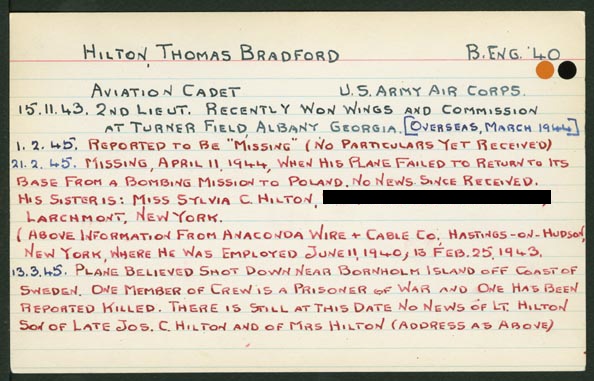 HILTON, THOMAS BRADFORD B.ENG. '40
AVIATION CADET U.S. ARMY AIR CORPS.
15.11.43. 2ND LIEUT. RECENTLY WON WINGS AND COMMISSION
AT TURNER FIELD, ALBANY GEORGIA. [OVERSEAS, MARCH 1944]
1.2.45. REPORTED TO BE "MISSING" (NO PARTICULARS YET RECEIVED)
21.2.45. MISSING, APRIL 11, 1944, WHEN HIS PLANE FAILED TO RETURN TO ITS
BASE FROM A BOMBING MISSION TO POLAND. NO NEWS SINCE RECEIVED.
HIS SISTER IS: MISS SYLVIA C. HILTON,
LARCHMONT, NEW YORK.
(ABOVE INFORMATION FROM ANACONDA WIRE + CABLE CO., HASTINGS-ON-HUDSON,
NEW YORK, WHERE HE WAS EMPLOYED JUNE 11, 1940, TO FEB. 25, 1943.
13.3.45. PLANE BELIEVED SHOT DOWN NEAR BORNHOLM ISLAND OFF COAST OF
SWEDEN. ONE MEMBER OF CREW IS A PRISONER OF WAR AND ONE HAS BEEN
REPORTED KILLED. THERE IS STILL AT THIS DATE NO NEWS OF LT. HILTON
SON OF LATE JOS. C. HILTON AND OF MRS HILTON (ADDRESS AS ABOVE)